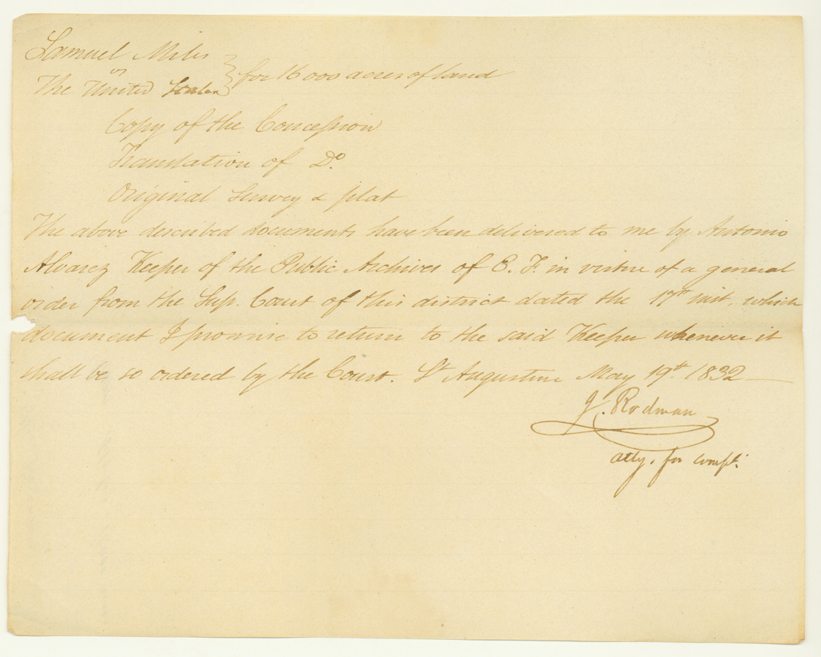 Samuel Miles
vs } for 16000 acres of land
The United States
Copy of the Concession
Translation of Do.
Original Survey & plat
The above described documents have been delivered to me by Antonio
Alvarez Keeper of the Public Archives of E. F. in virtue of a general
order from the Sup. Court of this district dated the 17th inst. which
document I promise to return to the said Keeper whenever it
shall be so ordered by the Court. St Augustine May 19th 1832
J. Rodman
atty. for compt.